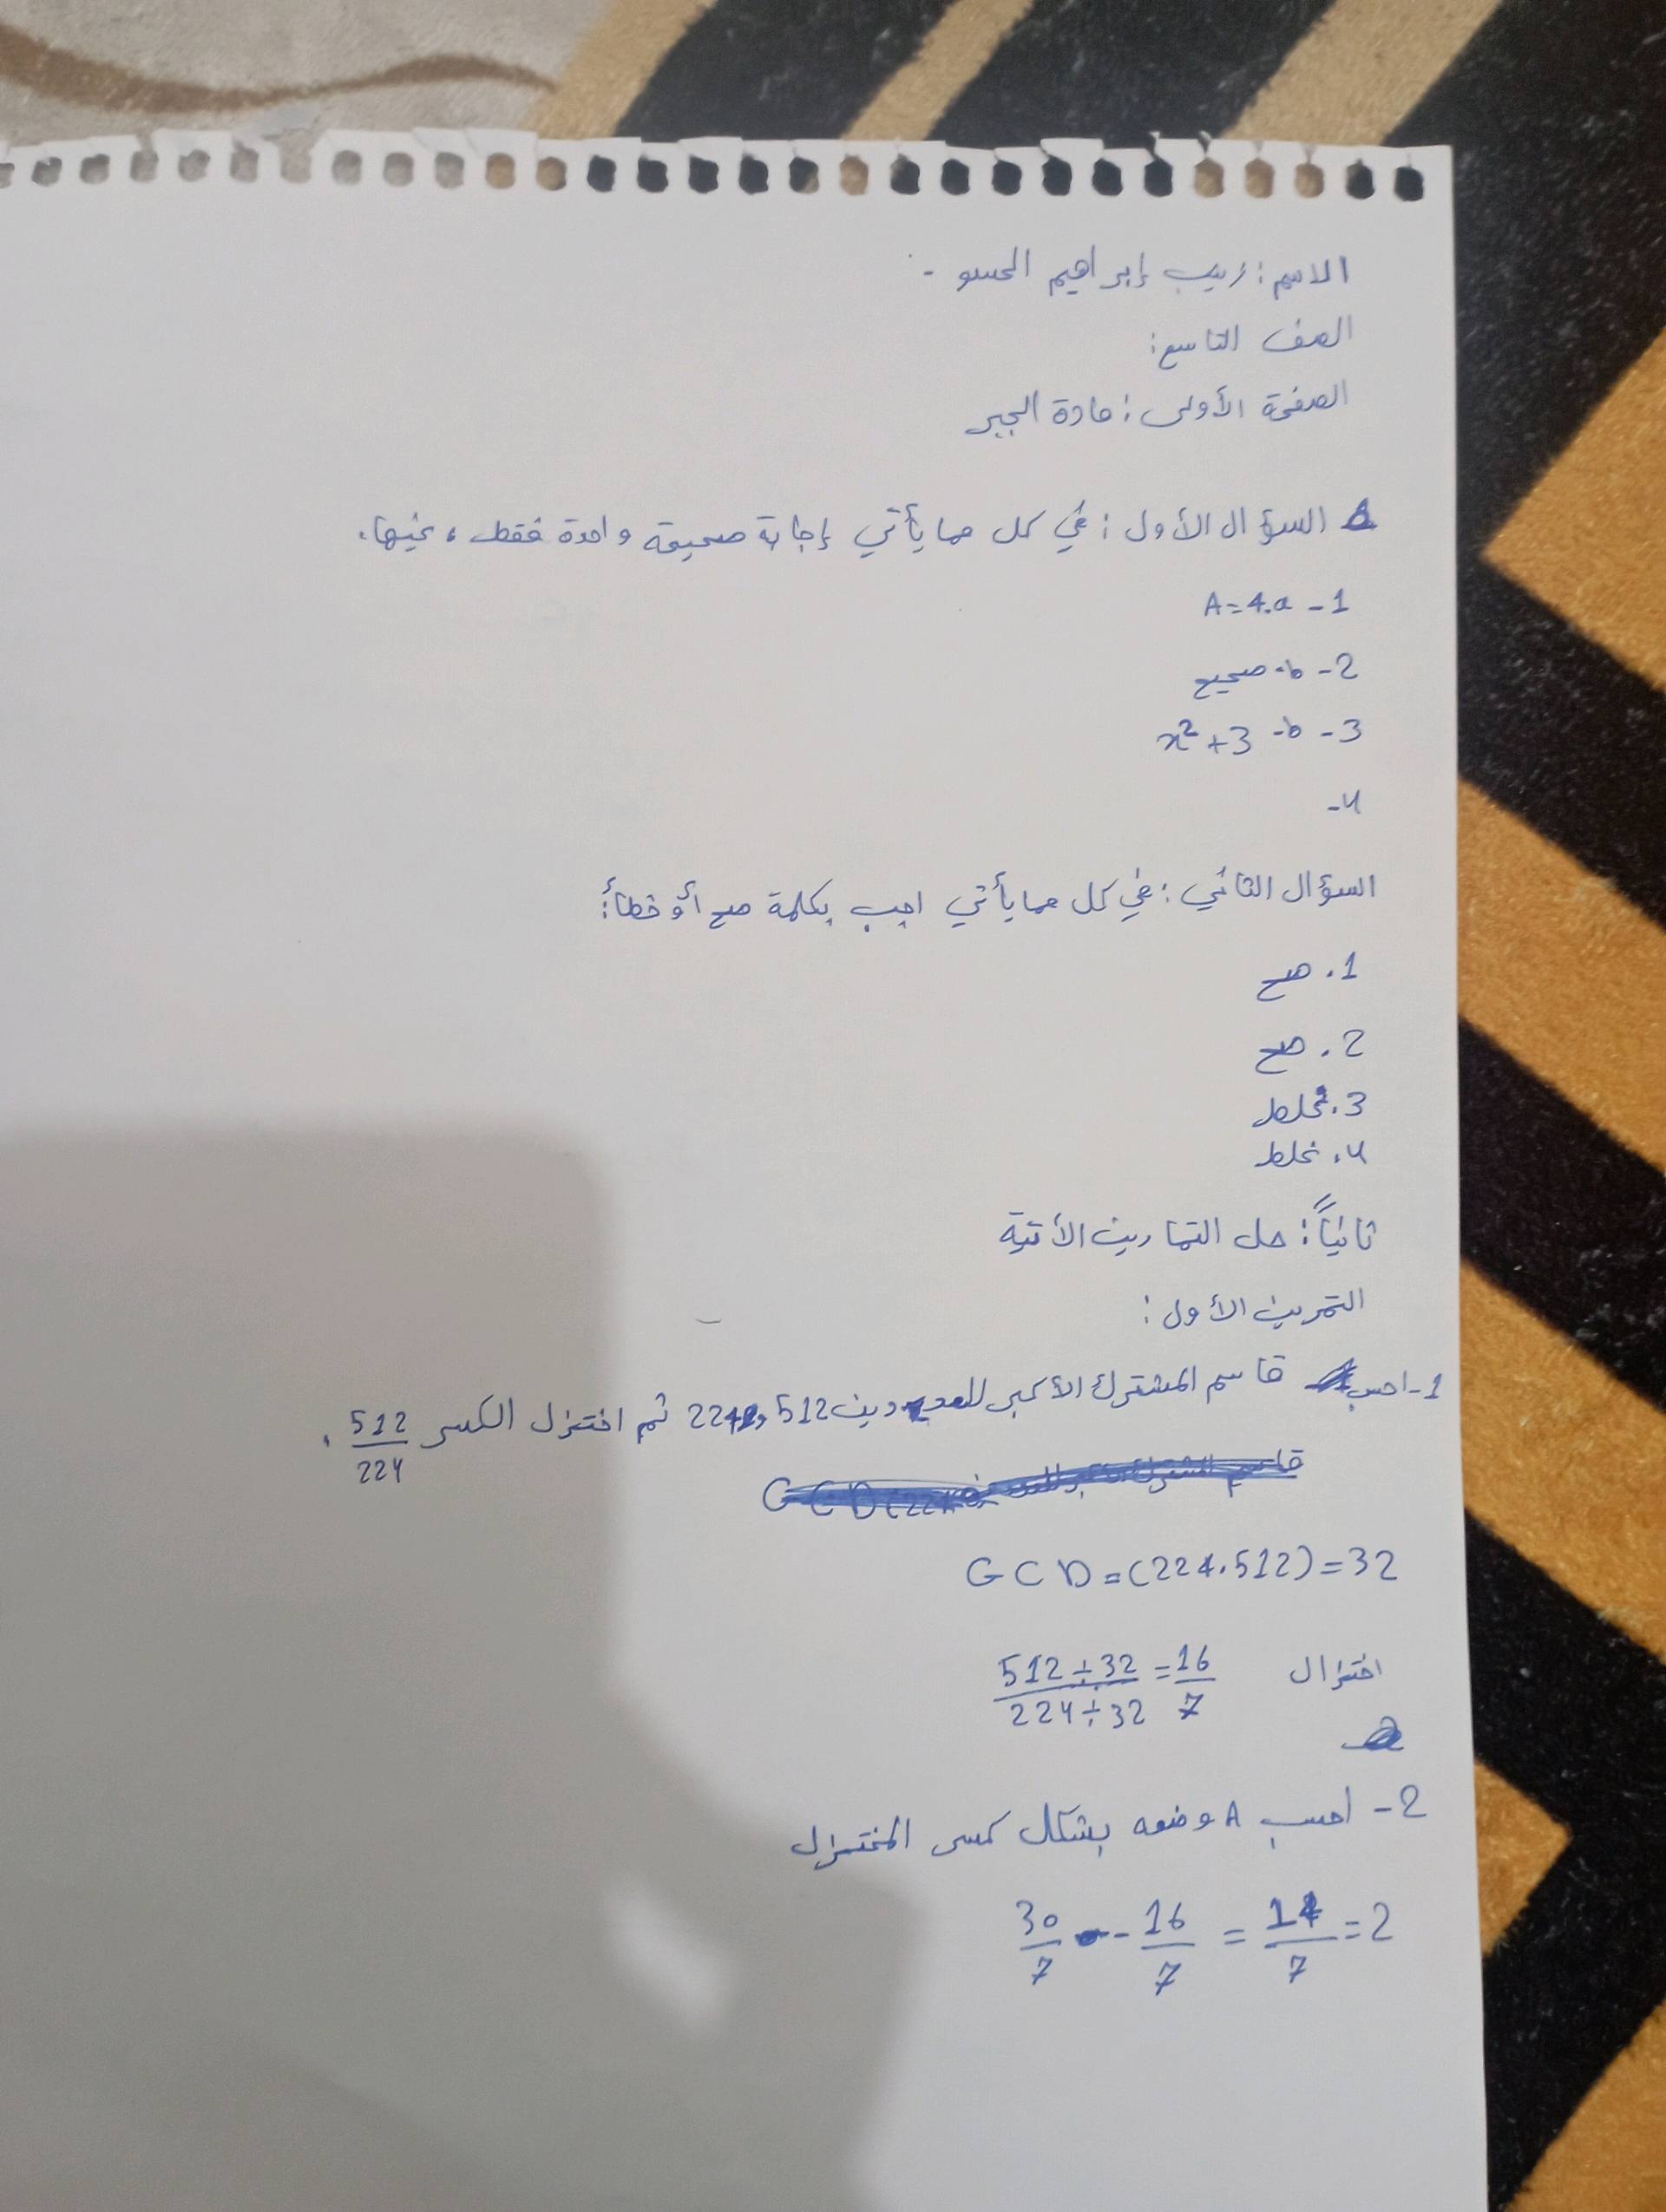 الاسم: زينب إبراهيم الحسو -
الصف التاسع:
الصفحة الأولى: مادة الجبر
السؤال الأول: في كل مما يأتي إجابة صحيحة واحدة فقط، عينها.
1 - A=4.a
2 - b- صحيح
3 - b- x²+3
4-
السؤال الثاني: في كل مما يأتي اجب بكلمة صح أو خطأ:
1. صح
2. صح
3. غلط
4. غلط
ثانياً: حل التمارين الأتية
التمرين الأول:
1- احسب قاسم المشترك الأكبر للعددين 512 و 224 ثم اختزل الكسر 512/224.
GCD=(224.512)=32
اختزال 512÷32/224÷32 = 16/7
2- احسب A وضعه بشكل كسر المختزل
30/7 - 16/7 = 14/7 = 2